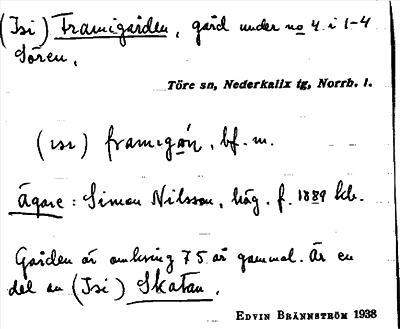 (Isi) Framigården, gård under no 4 i 1-4
Sören.
Töre sn, Nederkalix tg, Norrb. l.
(ısı) framıgȧ́n, bf. m.
Ägare: Simon Nilsson, häg. f. 1889 hb.
Gården är omkring 75 år gammal. Är en
del av (Isi) Skatan.
EDVIN BRÄNNSTRÖM 1938